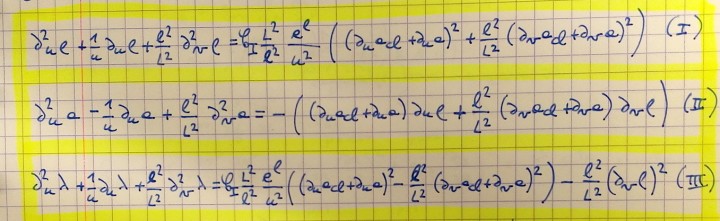 ∂²ᵤℓ + 1/u ∂ᵤℓ + ℓ²/L² ∂²ᵥℓ = ℓ_I L²/ℓ² e^ℓ/u² ( (∂ᵤad + ∂ᵤa)² + ℓ²/L² (∂ᵥad + ∂ᵥa)² ) (I)
∂²ᵤa - 1/u ∂ᵤa + ℓ²/L² ∂²ᵥa = - ( (∂ᵤad + ∂ᵤa) ∂ᵤℓ + ℓ²/L² (∂ᵥad + ∂ᵥa) ∂ᵥℓ ) (II)
∂²ᵤλ + 1/u ∂ᵤλ + ℓ²/L² ∂²ᵥλ = ℓ_I L²/ℓ² e^ℓ/u² ( (∂ᵤad + ∂ᵤa)² - ℓ²/L² (∂ᵥad + ∂ᵥa)² ) - ℓ²/L² (∂ᵥℓ)² (III)